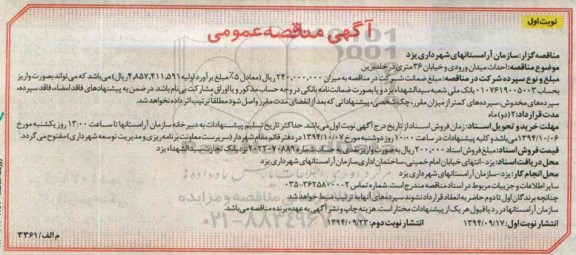 نوبت اول
آگهی مناقصه عمومی
مناقصه گزار: سازمان آرامستانهای شهرداری یزد
موضوع مناقصه: احداث میدان ورودی و خیابان ۳۶متری در خلدبرین
مبلغ و نوع سپرده شرکت در مناقصه: مبلغ ضمانت شرکت در مناقصه به میزان ۲۴۰,۰۰۰,۰۰۰ ریال (معادل ۵٪ مبلغ برآورد اولیه ۴,۸۵۷,۴۱۱,۵۹۱ ریال) می باشد که می تواند بصورت واریز
بحساب ۰۱۰۷۶۱۹۰۰۵۰۰۳ بانک ملی شعبه سیدالشهداء یزد و یا بصورت ضمانت نامه بانکی در وجه حساب مذکور و یا اوراق مشارکت بی نام باشد. در ضمن به پیشنهادهای فاقد امضاء، فاقد سپرده،
سپرده های مخدوش، سپرده های کمتر از میزان مقرر، چک شخصی، پیشنهاداتی که بعد از انقضای مدت مقرر واصل شود مطلقا ترتیب اثر داده نخواهد شد.
مدت قرارداد: ۲ (دو) ماه
مهلت خرید و تحویل اسناد: زمان فروش اسناد از تاریخ درج آگهی نوبت اول می باشد. حداکثر تاریخ تسلیم پیشنهادات به دبیرخانه سازمان آرامستانها تا ساعت ۱۳:۰۰ روز یکشنبه مورخ
۱۳۹۴/۱۰/۰۶ می باشد و کلیه پیشنهادات در ساعت ۱۰:۰۰ روز دوشنبه مورخ ۱۳۹۴/۱۰/۰۷ در دفتر قائم مقام شهردار (سرپرست معاونت برنامه ریزی و مدیریت توسعه شهرداری) مفتوح می گردد.
قیمت فروش اسناد: مبلغ فروش اسناد ۲۰۰,۰۰۰ ریال به صورت واریز نقدی به حساب شماره ۲۰۲۲۰۷۰۸۸۹۰ نزد بانک تجارت سیدالشهداء یزد
محل دریافت اسناد: یزد- انتهای خیابان امام خمینی، ساختمان اداری، سازمان آرامستانهای شهرداری یزد
محل انجام کار: یزد- سازمان آرامستانهای شهرداری یزد
سایر اطلاعات و جزییات مربوط در اسناد مناقصه مندرج است. شماره تماس ۲-۰۳۵-۳۶۲۵۸۰۰۰
چنانچه برندگان اول تا دوم حاضر به انعقاد قرارداد نشوند سپرده های آنها به ترتیب ضبط خواهد شد.
سازمان آرامستانها در رد یا قبول هر یک از پیشنهادات مختار است. هزینه چاپ و نشر آگهی به عهده برنده مناقصه می باشد.
انتشار نوبت اول: ۱۳۹۴/۰۹/۱۷ انتشار نوبت دوم: ۱۳۹۴/۰۹/۲۳
م الف/۳۳۶۱